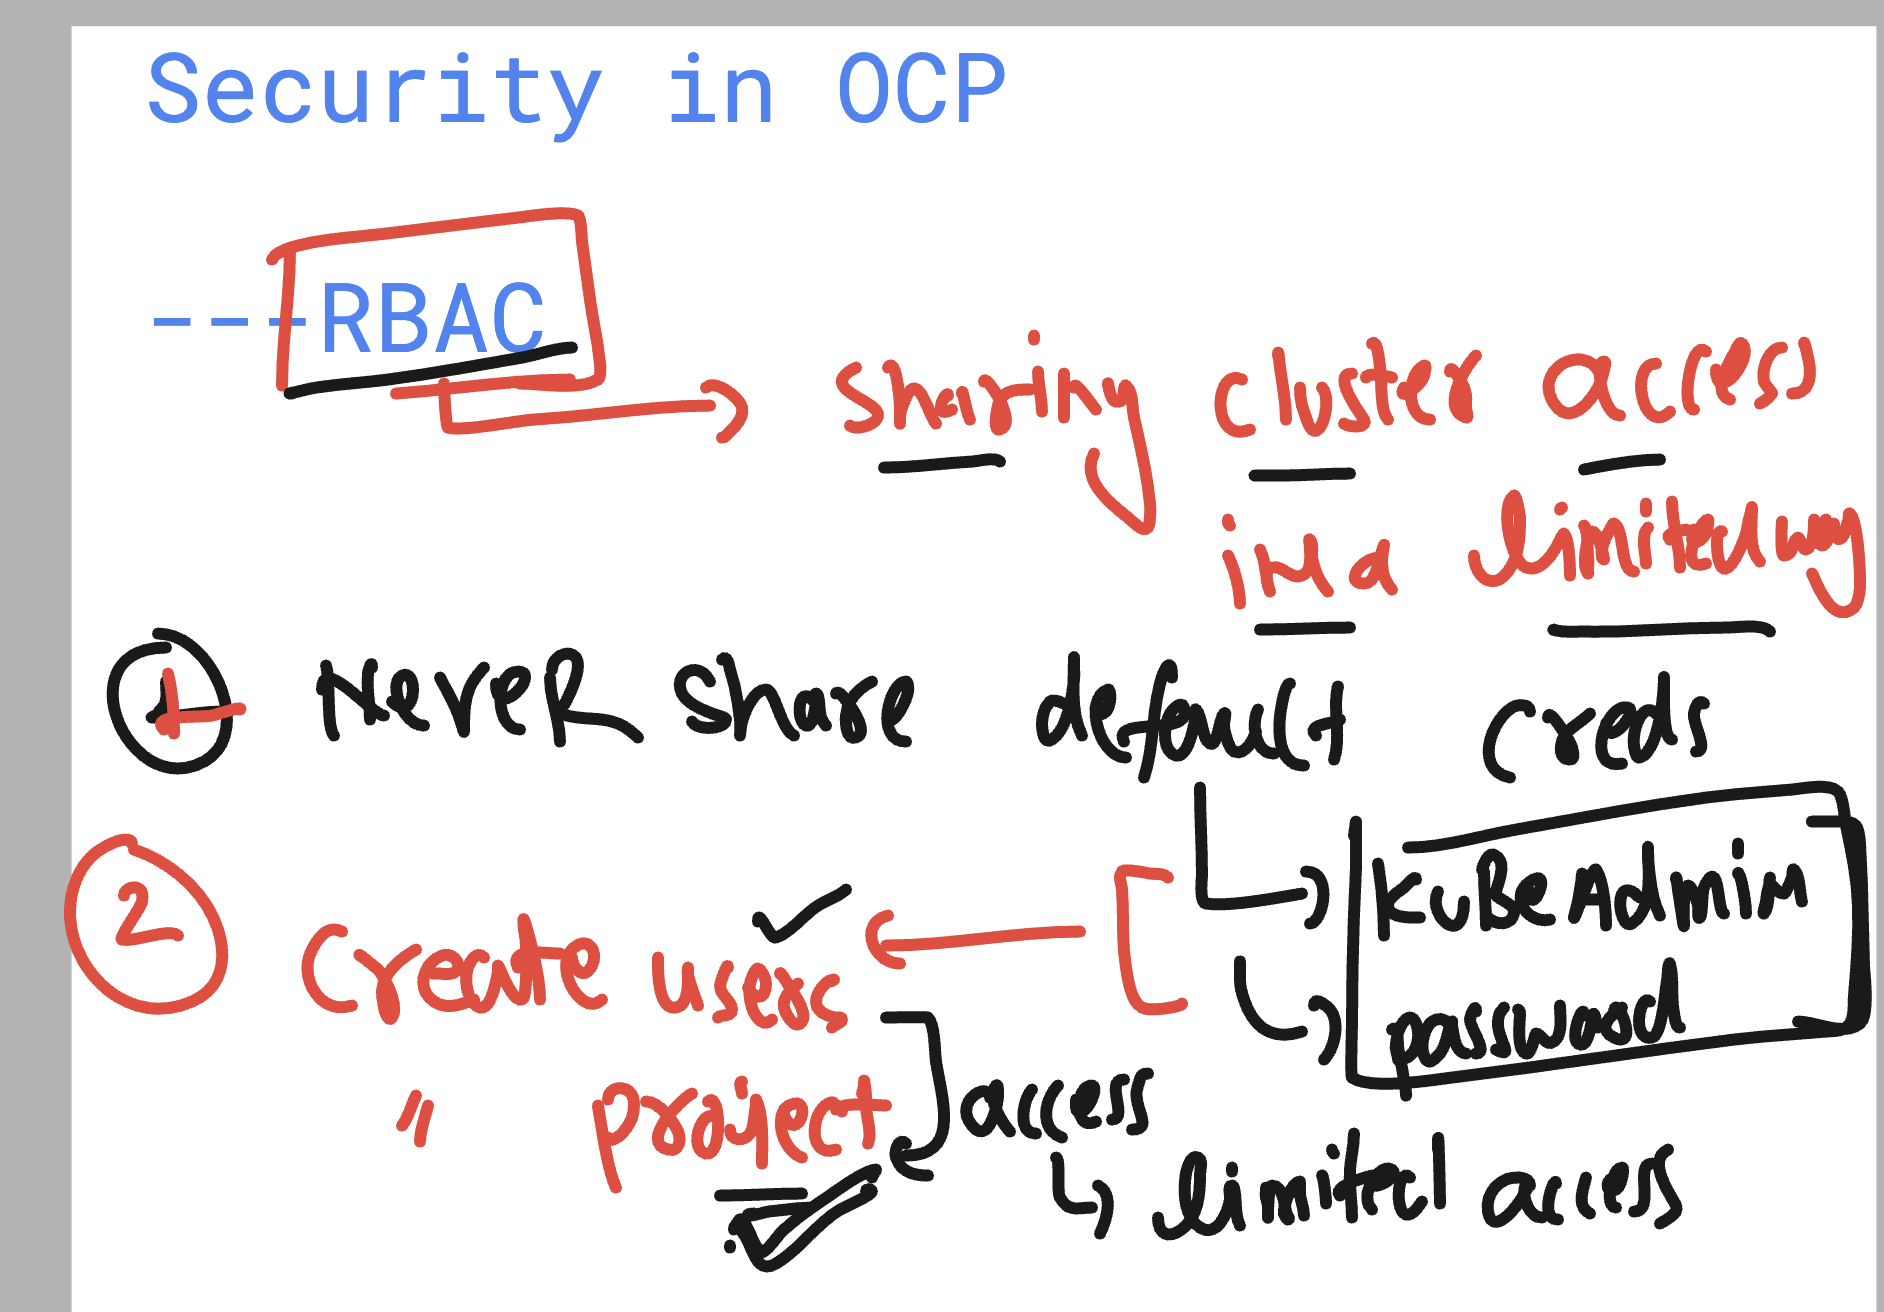 Security in OCP
---RBAC
sharing cluster access
in a limited way
1 Never share default creds
KuBeAdmin
2 Create users
password
" project access
limited access